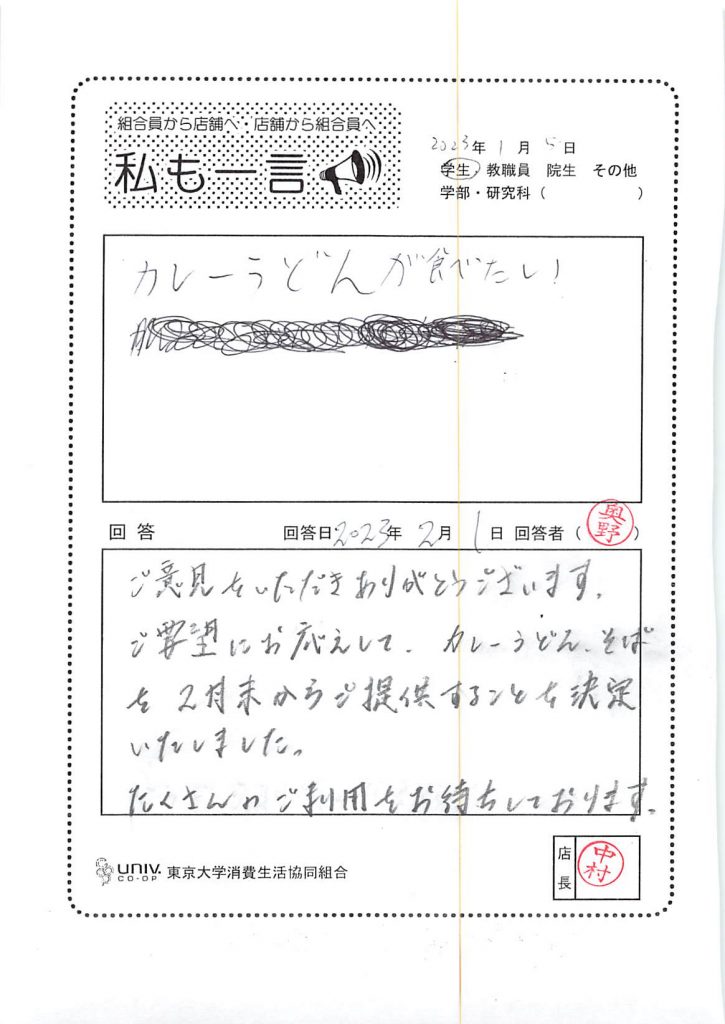 組合員から店舗へ・店舗から組合員へ
私も一言
2023年1月5日
学生 教職員 院生 その他
学部・研究科( )
カレーうどんが食べたい!
回答 回答日2023年2月1日 回答者(奥野)
ご意見をいただきありがとうございます。
ご要望にお応えして、カレーうどん、そば
を2月末からご提供することを決定
いたしました。
たくさんのご利用をお待ちしております。
UNIV.
CO-OP
東京大学消費生活協同組合
店長
中村